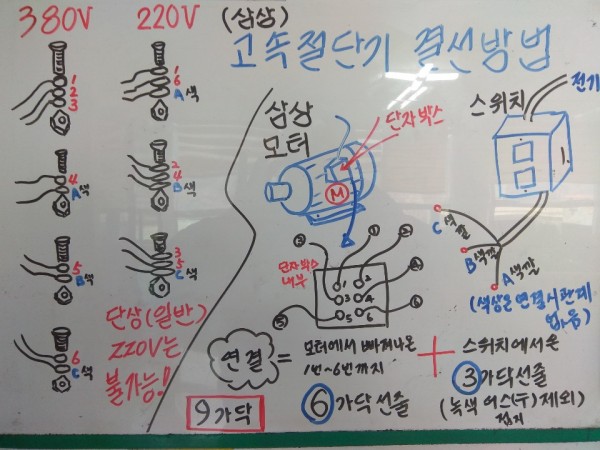 380V
220V (삼상)
고속절단기 결선방법
1
2
3
1
6
A색
4
A색
2
4
B색
5
B색
3
5
C색
6
C색
단상(일반)
220V는
불가능!
삼상
모터
단자박스
M
스위치
전기
C색깔
B색깔
A색깔
(색상은 연결시 관계
없음)
단자박스
내부
1 2
3 4
5 6
연결 =
모터에서 빠져나온
1번~6번까지
⑥가닥 선줄
+
스위치에서온
③가닥선줄
(녹색 어스(우)제외)
접지
9가닥